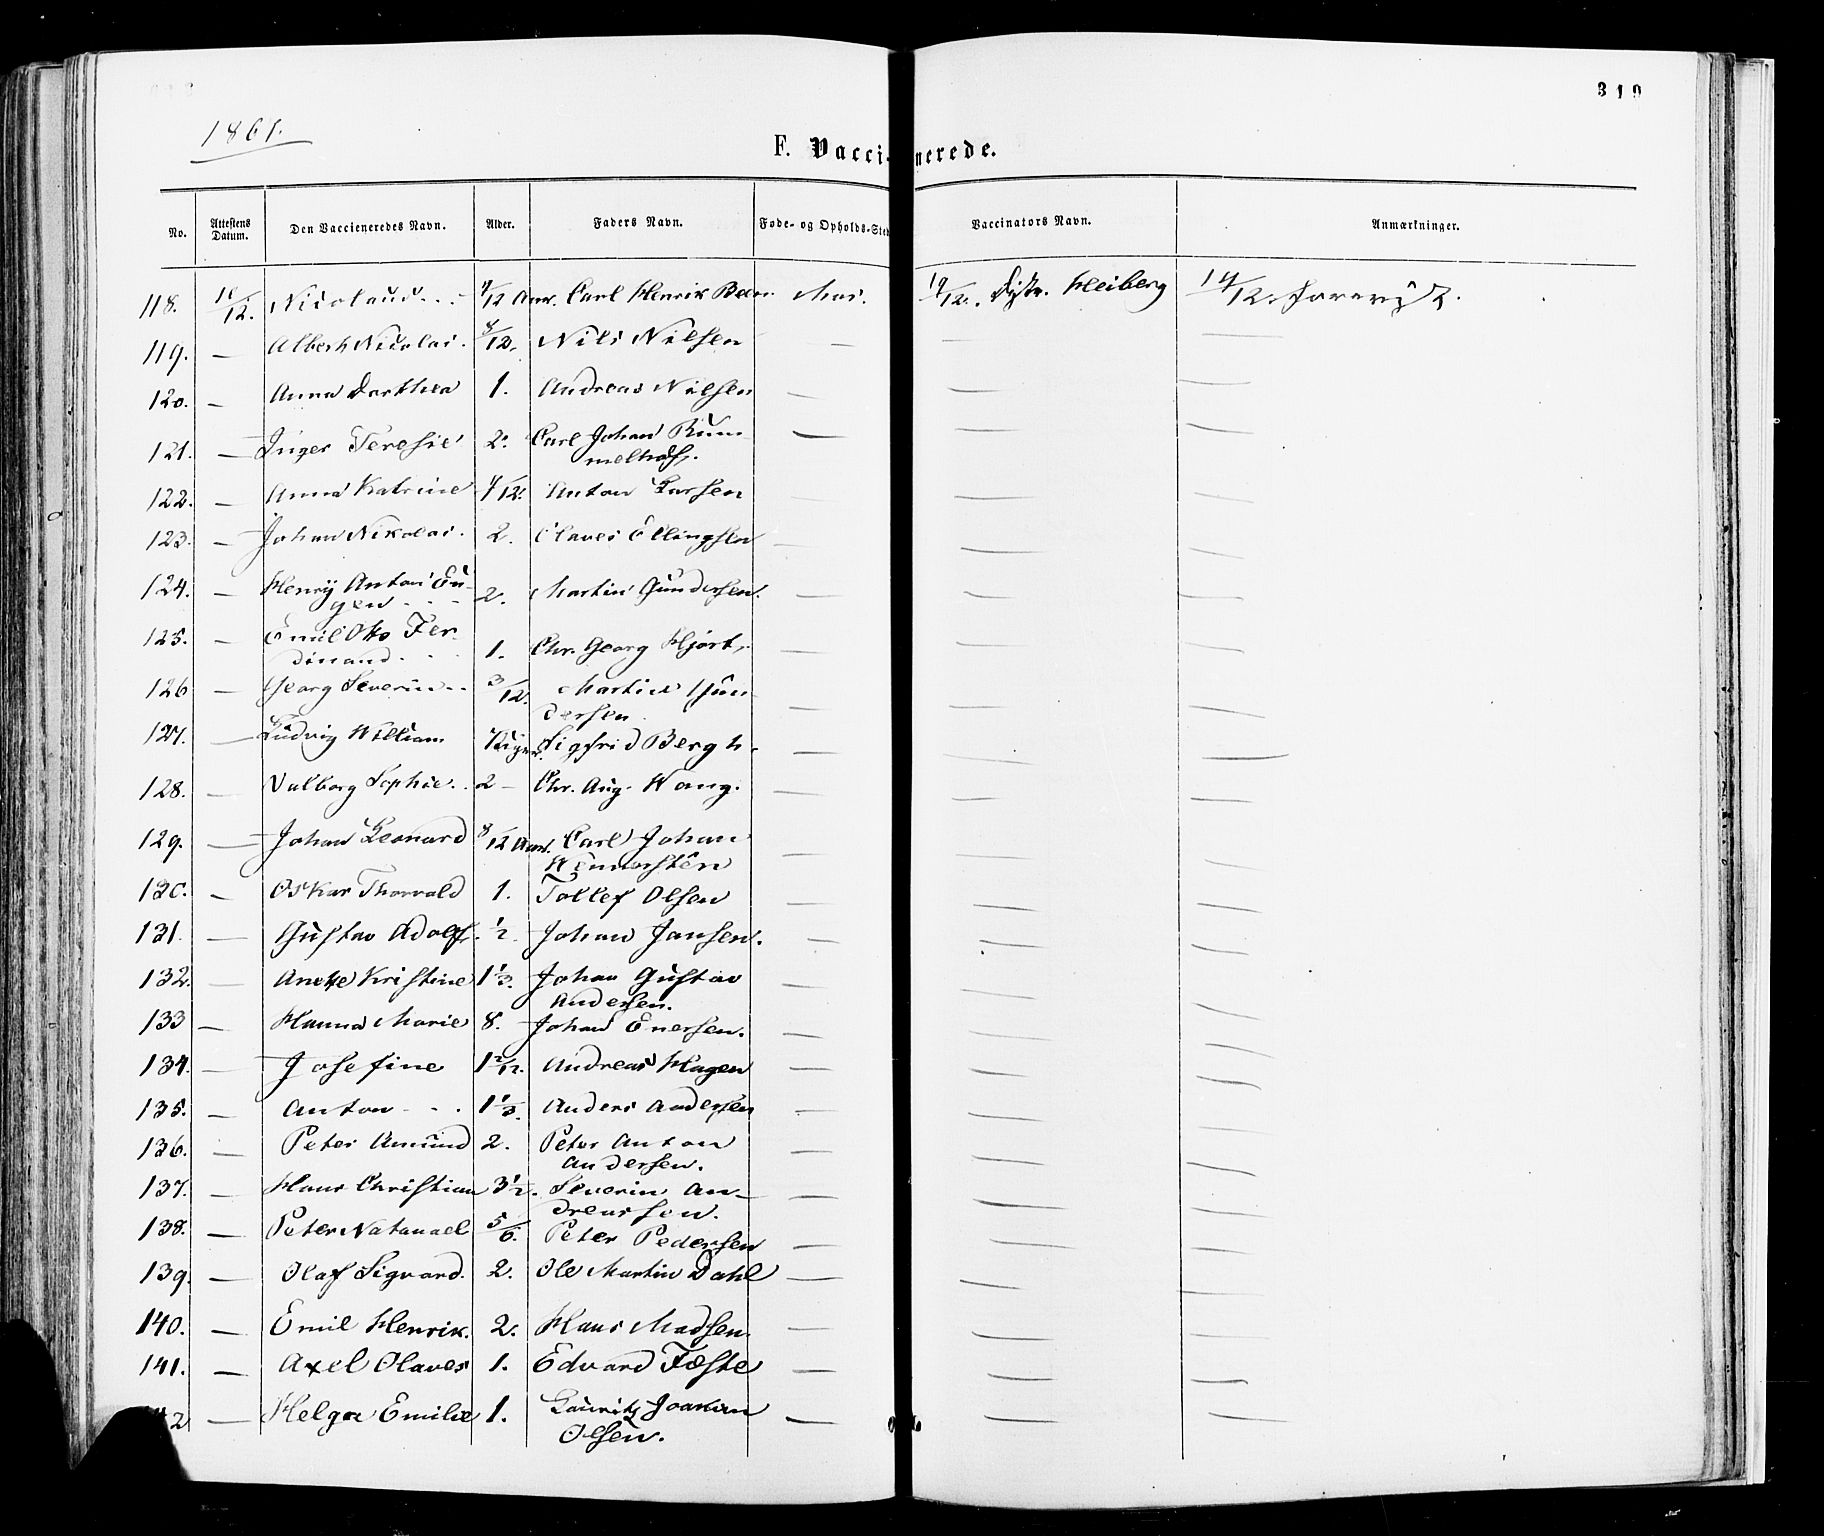 319
1861.
F. Vaccienerede.
No. Attestens Datum. Den Vaccieneredes Navn. Alder. Faders Navn. Føde- og Opholds-Sted Vaccinators Navn. Anmærkninger.
118. /12. Nicolaus 9/12 Aar. Carl Henrik Beer Mos. 19/12. Heiberg 14/12.
119. — Albert Nicolai. 8/12. Nils Nilsen — — —
120. — Anna Dorthea 1. Andreas Nilsen — — —
121. — Inger Teresie 2. Carl Johan Rum-
melhof. — — —
122. — Anna Katrine 9/12. Anton Larsen — —
123. — Johan Nikolai. 2. Olaves Ellingsen — — —
124. — Henry Anton Eu-
gen 2. Martin Gundersen. — —
125. — Emil Otto Fer-
dinand. 1. Chr. Georg Hjort. — — —
126 — Georg Severin 3/12. Martin Gun-
dersen — — —
127. — Ludvig William Sigfrid Bergh. — — —
128. — Valborg Sophie. 2 — Chr. Aug. Wang. — — —
129. — Johan Leonard 8/12 Aar. Carl Johan
Wennersten — — —
130. — Oskar Thorvald 1. Tollef Olsen — — —
131. — Gustav Adolf. 1/2. Johan Jansen. — — —
132. — Anette Kristine 1 1/3. Johan Gustav
Andersen. — — —
133 — Hanna Marie 8. Johan Enersen. — — —
134. — Josefine 1 2/12. Andreas Hagen — — —
135. — Anton 1 1/3. Anders Andersen — — —
136. — Peter Amund 2. Peter Anton
Andersen. — — —
137. — Hans Christian 3 1/2. Severin An-
dreassen. — — —
138. — Peter Natanael 5/6. Peter Pedersen — — —
139. — Olaf Sigvard. 2. Ole Martin Dahl — — —
140. — Emil Henrik. 2. Hans Madsen — — —
141. — Axel Olaves 1. Edvard Fæste — — —
2 — Helga Emilie 1. Lauritz Joakim
Olsen. — — —